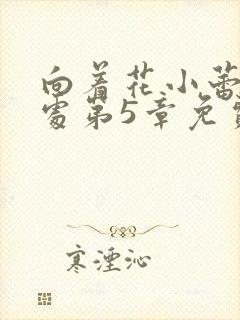 向着花小蕾
处第5章免
寒湮沁